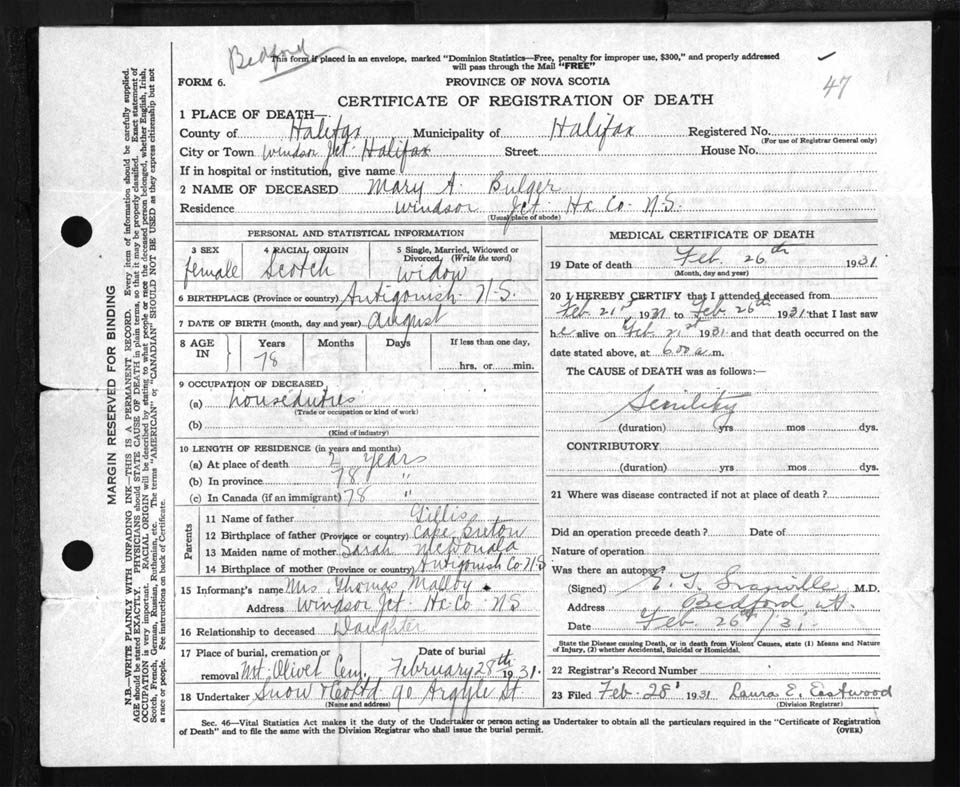 Bedford
This form if placed in an envelope, marked "Dominion Statistics—Free, penalty for improper use, $300," and properly addressed
will pass through the Mail "FREE"
47
FORM 6.
PROVINCE OF NOVA SCOTIA
CERTIFICATE OF REGISTRATION OF DEATH
1 PLACE OF DEATH—
County of Halifax Municipality of Halifax Registered No.
(For use of Registrar General only)
City or Town Windsor Jct. Halifax Street House No.
If in hospital or institution, give name
2 NAME OF DECEASED Mary A. Bulger
Residence Windsor Jct. Hx Co. N.S.
(Usual place of abode)
PERSONAL AND STATISTICAL INFORMATION
3 SEX 4 RACIAL ORIGIN 5 Single, Married, Widowed or
Divorced (Write the word)
female Scotch Widow
6 BIRTHPLACE (Province or country) Antigonish N.S.
7 DATE OF BIRTH (month, day and year) August
8 AGE IN Years Months Days If less than one day,
78 hrs. or min.
9 OCCUPATION OF DECEASED
(a) houseduties
(Trade or occupation or kind of work)
(b)
(Kind of industry)
10 LENGTH OF RESIDENCE (in years and months)
(a) At place of death 2 years
(b) In province 78 "
(c) In Canada (if an immigrant) 78 "
Parents
11 Name of father Gillis
12 Birthplace of father (Province or country) Cape Breton
13 Maiden name of mother Sarah McDonald
14 Birthplace of mother (Province or country) Antigonish Co. N.S
15 Informant's name Mrs. Thomas Malloy
Address Windsor Jct. Hx Co. N.S
16 Relationship to deceased Daughter
17 Place of burial, cremation or Date of burial
removal Mt. Olivet Cem. February 28th 1931.
18 Undertaker Snow & Co Ltd 90 Argyle St
(Name and address)
MEDICAL CERTIFICATE OF DEATH
19 Date of death Feb. 26th 1931
(Month, day and year)
20 I HEREBY CERTIFY that I attended deceased from
Feb 21st 1931 to Feb. 26th 1931 that I last saw
h e alive on Feb. 21st 1931 and that death occurred on the
date stated above, at 6.00 a.m.
The CAUSE OF DEATH was as follows:—
Senility
(duration) yrs mos dys.
CONTRIBUTORY
(duration) yrs mos dys.
21 Where was disease contracted if not at place of death?
Did an operation precede death? Date of
Nature of operation
Was there an autopsy?
(Signed) Granville M.D.
Address Bedford
Date Feb. 26th/31.
State the Disease causing Death, or in death from Violent Causes, state (1) Means and Nature
of Injury, (2) whether Accidental, Suicidal or Homicidal.
22 Registrar's Record Number
23 Filed Feb. 28' 1931 Laura E. Eastwood
(Division Registrar)
Sec. 46—Vital Statistics Act makes it the duty of the Undertaker or person acting as Undertaker to obtain all the particulars required in the "Certificate of Registration
of Death" and to file the same with the Division Registrar who shall issue the burial permit.
(OVER)
MARGIN RESERVED FOR BINDING
N.B.—WRITE PLAINLY WITH UNFADING INK—THIS IS A PERMANENT RECORD. Every item of information should be carefully supplied.
AGE should be stated EXACTLY. PHYSICIANS should STATE CAUSE OF DEATH in plain terms, so that it may be properly classified. Exact statement of
OCCUPATION is very important. RACIAL ORIGIN will be described by stating to what people or race the deceased person belonged, whether English, Irish,
Scotch, French, German, Russian, Ruthenian, etc. The terms "AMERICAN" or "CANADIAN" SHOULD NOT BE USED as they express citizenship but not
a race or people. See instructions on back of Certificate.